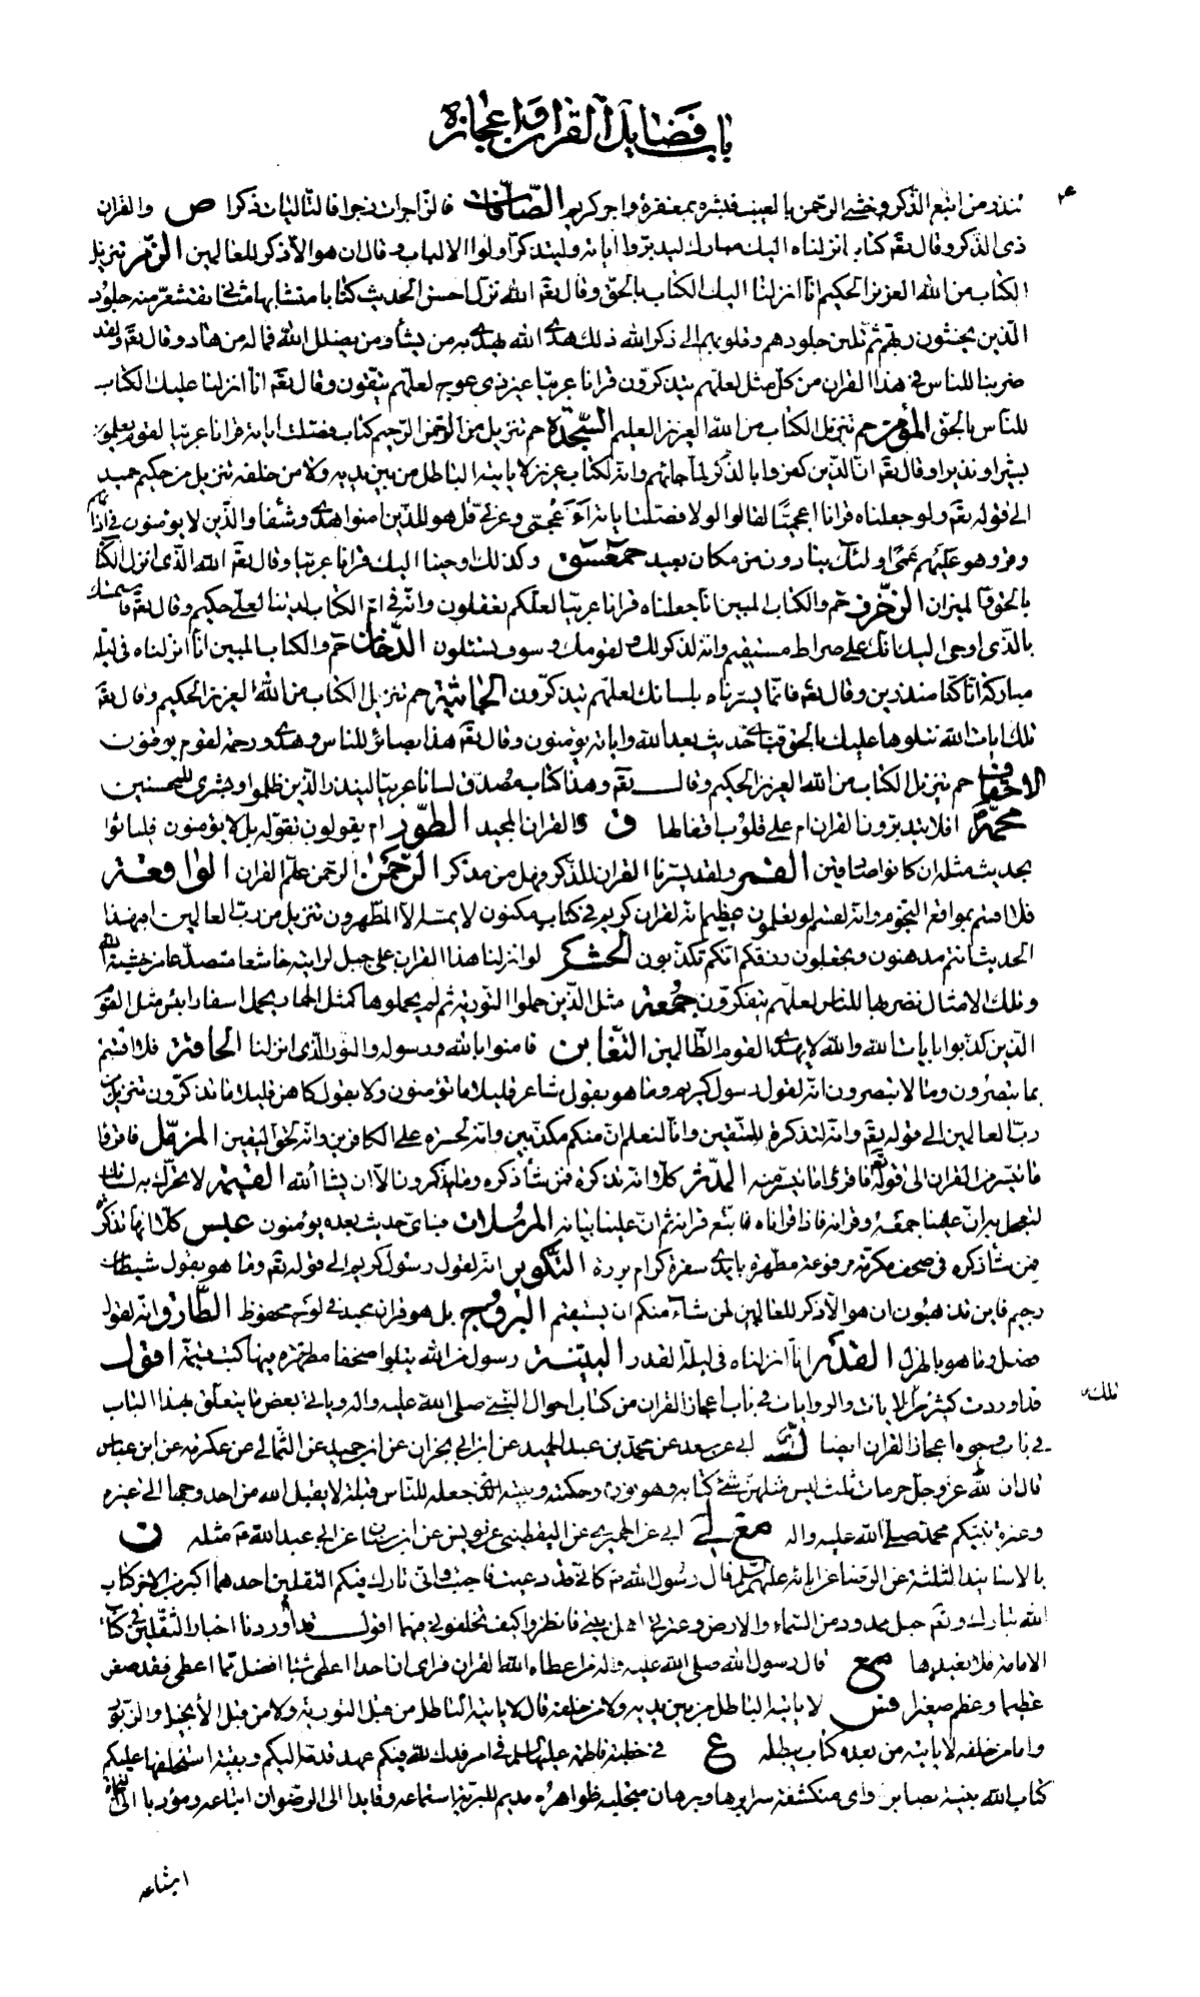 باب فضایل القرآن واعجازه
تنذر من اتبع الذكر وخشى الرحمن بالغيب فبشره بمغفرة واجر كريم الصافات فالزاجرات زجرا فالتاليات ذكرا ص والقران
ذى الذكر وقال تعم كتاب انزلناه اليك مبارك ليدبروا اياته وليتذكر اولوا الالباب وقال ان هو الا ذكر للعالمين الزمر تنزيل
الكتاب من الله العزيز الحكيم انا انزلنا اليك الكتاب بالحق وقال تعم الله نزل احسن الحديث كتابا متشابها مثانى تقشعر منه جلود
الذين يخشون ربهم ثم تلين جلودهم وقلوبهم الى ذكر الله ذلك هدى الله يهدى به من يشاء ومن يضلل الله فما له من هاد وقال تعم ولقد
ضربنا للناس فى هذا القران من كل مثل لعلهم يتذكرون قرانا عربيا غير ذى عوج لعلهم يتقون وقال تعم انا انزلنا عليك الكتاب
للناس بالحق المؤمن حم تنزيل الكتاب من الله العزيز العليم السجدة حم تنزيل من الرحمن الرحيم كتاب فصلت اياته قرانا عربيا لقوم يعلمون
بشيرا ونذيرا وقال تعم ان الذين كفروا بالذكر لما جائهم وانه لكتاب عزيز لا ياتيه الباطل من بين يديه ولا من خلفه تنزيل من حكيم حميد
الى قوله تعم ولو جعلناه قرانا اعجميا لقالوا لولا فصلت اياته ءاعجمى وعربى قل هو للذين امنوا هدى وشفاء والذين لا يؤمنون فى اذانهم
وقر وهو عليهم عمى اولئك ينادون من مكان بعيد حمعسق وكذلك اوحينا اليك قرانا عربيا وقال تعم الله الذى انزل الكتاب
بالحق والميزان الزخرف حم والكتاب المبين انا جعلناه قرانا عربيا لعلكم تعقلون وانه فى ام الكتاب لدينا لعلى حكيم وقال تعم فاستمسك
بالذى اوحى اليك انك على صراط مستقيم وانه لذكر لك ولقومك وسوف تسئلون الدخان حم والكتاب المبين انا انزلناه فى ليلة
مباركة انا كنا منذرين وقال تعم فانما يسرناه بلسانك لعلهم يتذكرون الجاثية حم تنزيل الكتاب من الله العزيز الحكيم وقال تعم
تلك ايات الله نتلوها عليك بالحق فباى حديث بعد الله واياته يؤمنون وقال تعم هذا بصائر للناس وهدى ورحمة لقوم يوقنون
الاحقاف حم تنزيل الكتاب من الله العزيز الحكيم وقال تعم وهذا كتاب مصدق لسانا عربيا لينذر الذين ظلموا وبشرى للمحسنين
محمد افلا يتدبرون القران ام على قلوب اقفالها ق والقران المجيد الطور ام يقولون تقوله بل لا يؤمنون فلياتوا
بحديث مثله ان كانوا صادقين القمر ولقد يسرنا القران للذكر فهل من مدكر الرحمن الرحمن علم القران الواقعة
فلا اقسم بمواقع النجوم وانه لقسم لو تعلمون عظيم انه لقران كريم فى كتاب مكنون لا يمسه الا المطهرون تنزيل من رب العالمين افبهذا
الحديث انتم مدهنون وتجعلون رزقكم انكم تكذبون الحشر لو انزلنا هذا القران على جبل لرايته خاشعا متصدعا من خشية الله
وتلك الامثال نضربها للناس لعلهم يتفكرون جمعة مثل الذين حملوا التورية ثم لم يحملوها كمثل الحمار يحمل اسفارا بئس مثل القوم
الذين كذبوا بايات الله والله لا يهدى القوم الظالمين التغابن فامنوا بالله ورسوله والنور الذى انزلنا الحاقة فلا اقسم
بما تبصرون وما لا تبصرون انه لقول رسول كريم وما هو بقول شاعر قليلا ما تؤمنون ولا بقول كاهن قليلا ما تذكرون تنزيل من
رب العالمين الى قوله تعم وانه لتذكرة للمتقين وانا لنعلم ان منكم مكذبين وانه لحسرة على الكافرين وانه لحق اليقين المزمل فاقرؤا
ما تيسر من القران الى قوله تعم فاقرؤا ما تيسر منه المدثر كلا انه تذكرة فمن شاء ذكره وما يذكرون الا ان يشاء الله القيمة لا تحرك به لسانك
لتعجل به ان علينا جمعه وقرانه فاذا قراناه فاتبع قرانه ثم ان علينا بيانه المرسلات فباى حديث بعده يؤمنون عبس كلا انها تذكرة
فمن شاء ذكره فى صحف مكرمة مرفوعة مطهرة بايدى سفرة كرام بررة التكوير انه لقول رسول كريم الى قوله تعم وما هو بقول شيطان
رجيم فاين تذهبون ان هو الا ذكر للعالمين لمن شاء منكم ان يستقيم البروج بل هو قران مجيد فى لوح محفوظ الطارق انه لقول
فصل وما هو بالهزل القدر انا انزلناه فى ليلة القدر البينة رسول من الله يتلوا صحفا مطهرة فيها كتب قيمة اقول
قد اوردت كثيرا من الايات والروايات فى باب اعجاز القران من كتاب احوال النبى صلى الله عليه واله وياتى بعض ما يتعلق بهذا الباب
فى باب وجوه اعجاز القران ايضا ابى عن سعد عن محمد بن عبد الحميد عن ابن ابى نجران عن ابن حميد عن الثمالى عن عكرمة عن ابن عباس
قال ان لله عز وجل حرمات ثلث ليس مثلهن شئ كتابه وهو نوره وحكمته وبيته الذى جعله للناس قبلة لا يقبل الله من احد وجها الى غيره
وعترة نبيكم محمد صلى الله عليه واله مع لى ابى عن الحميرى عن اليقطينى عن يونس عن ابن سنان عن ابى عبد الله م مثله ن
بالاسانيد الثلثة عن الرضا عن ابائه عليهم السلم قال رسول الله ص كانى قد دعيت فاجبت وانى تارك فيكم الثقلين احدهما اكبر من الاخر كتاب
الله تبارك وتعم حبل ممدود من السماء والارض وعترتى اهل بيتى فانظروا كيف تخلفونى فيهما اقول قد اوردنا اخبار الثقلين فى كتاب
الامامة فلا نعيدها مع قال رسول الله صلى الله عليه واله من اعطاه الله القران فراى ان احدا اعطى شيئا افضل مما اعطى فقد صغر
عظيما وعظم صغيرا فس لا ياتيه الباطل من بين يديه ولا من خلفه قال لا ياتيه الباطل من قبل التورية ولا من قبل الانجيل والزبور
واما من خلفه لا ياتيه من بعده كتاب يبطله ع فى خطبة فاطمة عليها السلم فى امر فدك لله فيكم عهد قدمه اليكم وبقية استخلفها عليكم
كتاب الله بينة بصايره واى منكشفة سرايرها وبرهان متجلية ظواهره مديم للبرية استماعه وقايدا الى الرضوان اتباعه ومؤديا الى النجاة
اشياعه